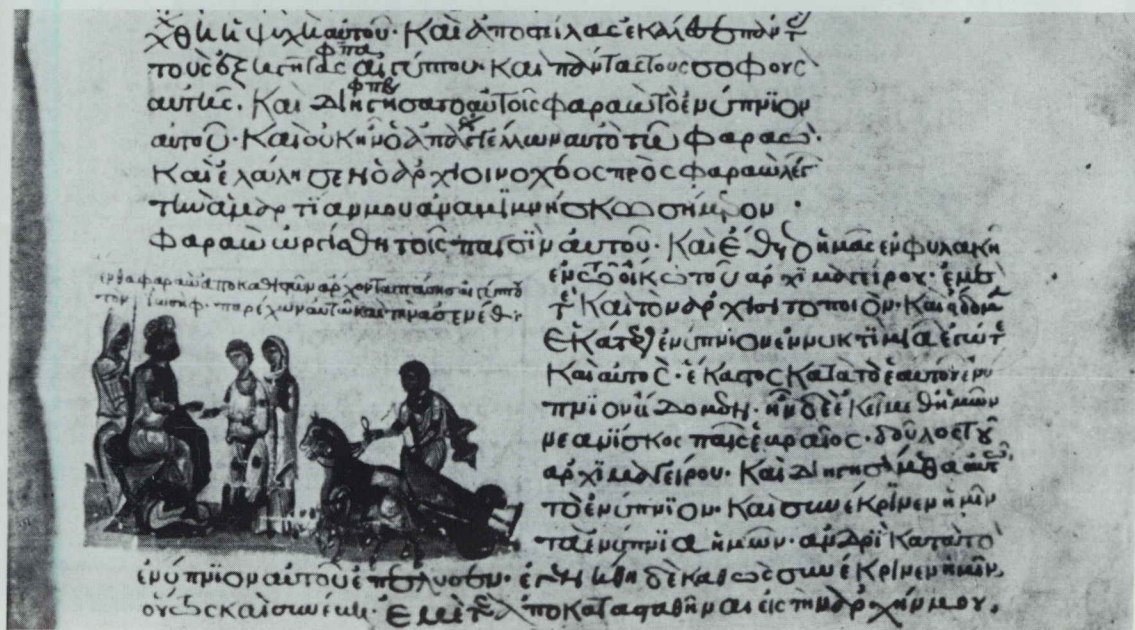 χθη ἡ ψυχὴ αὐτοῦ· Καὶ ἀποστείλας ἐκάλεσε πάντ
τοὺς ἐξηγητὰς αἰγύπτου· Καὶ πάντας τοὺς σοφοὺς
αὐτῆς. Καὶ διηγήσατο αὐτοῖς φαραὼ τὸ ἐνύπνιον
αὐτοῦ· Καὶ οὐκ ἦν ὁ ἀπαγγέλλων αὐτὸ τῶ φαραώ·
Καὶ ἐλάλησεν ὁ ἀρχιοινοχόος πρὸς φαραὼ λέγ
τὴν ἁμαρτίαν μου ἀναμιμνήσκω σήμερον·
φαραὼ ὠργίσθη τοῖς παισὶν αὐτοῦ· Καὶ ἔθετο ἡμᾶς ἐν φυλακῆ
ἐν τῶ οἴκω τοῦ ἀρχιμαγείρου· ἐμέ
τ Καὶ τὸν ἀρχισιτοποιόν· Καὶ ἴδομ
ἑκάτεροι ἐνύπνιον ἐν νυκτὶ μιᾶ ἐγώ τ
Καὶ αὐτός· ἕκαστος κατὰ τὸ ἑαυτοῦ ἐνύ
πνιον ἴδομεν· ἦν δὲ ἐκεῖ μεθ ἡμῶν
νεανίσκος παῖς ἑβραῖος· δοῦλος τοῦ
ἀρχιμαγείρου· Καὶ διηγησάμεθα αὐτ
τὸ ἐνύπνιον· Καὶ συνέκρινεν ἡμῖν
τὰ ἐνύπνια ἡμῶν· ἀνδρὶ κατὰ τὸ
ἐνύπνιον αὐτοῦ ἐπέλυσεν· ἐγενήθη δὲ καθὼς συνέκρινεν ἡμῖν,
οὕτως καὶ συνέβη· ἐμέ τε ἀποκατασταθῆναι εἰς τὴν ἀρχήν μου,
ἔνθα φαραὼ ἀποκαθιστῶν ἄρχοντα πάσης αἰγύπτου
τὸν ἰωσήφ· παρέχων αὐτῶ καὶ τὴν ἀσενέθ